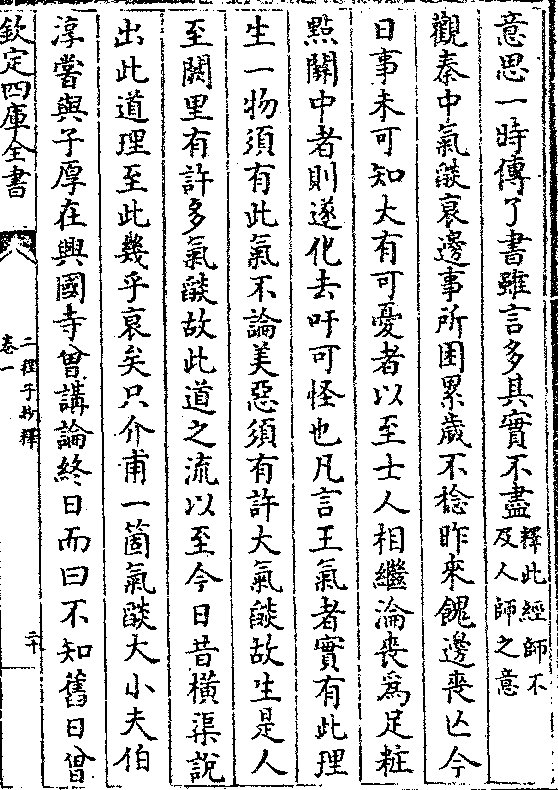 意思一時傳了書雖言多其實不盡釋此經師不及人師之意
觀秦中氣燄衰邊事所困累歲不稔昨來餽邊喪亡今
日事未可知大有可憂者以至士人相繼淪喪爲足粧
㸃關中者則遂化去吁可怪也凡言王氣者實有此理
生一物須有此氣不論美惡須有許大氣燄故生是人
至闕里有許多氣燄故此道之流以至今日昔横渠說
出此道理至此幾乎衰矣只介甫一箇氣燄大小夫伯
淳嘗與子厚在興國寺曾講論終日而曰不知舊日曾
欽定四庫全書
二程子抄釋
卷一
二十